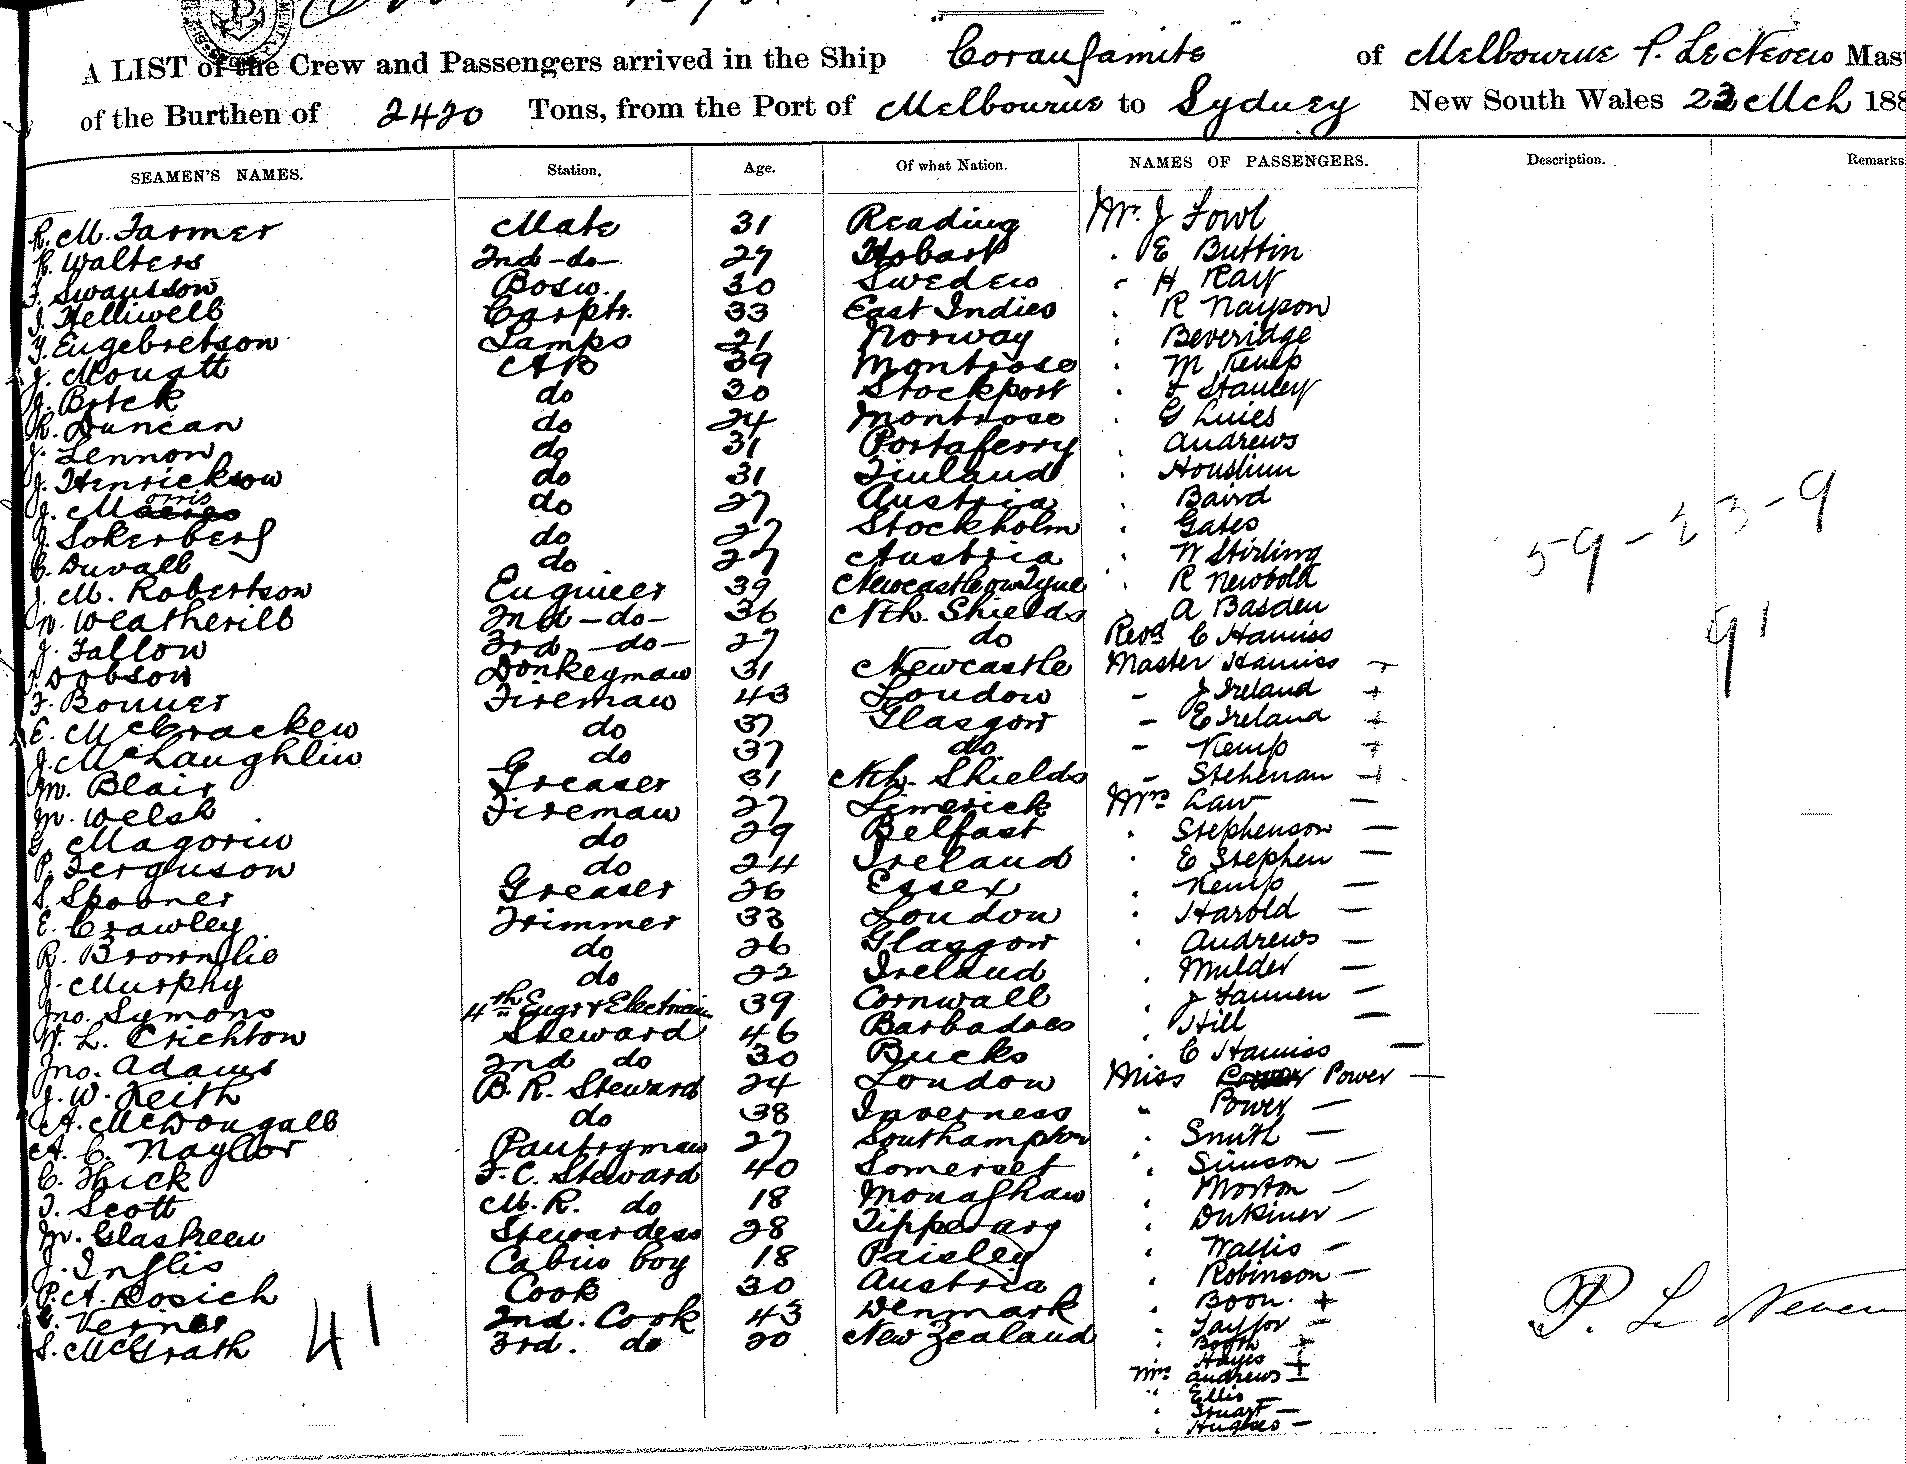 A LIST of the Crew and Passengers arrived in the Ship "Corangamite" of Melbourne P. Le Neveu Mas
of the Burthen of 2420 Tons, from the Port of Melbourne to Sydney New South Wales 23 Mch 188
SEAMEN'S NAMES. Station. Age. Of what Nation. NAMES OF PASSENGERS. Description. Remarks
R. M. Farmer Mate 31 Reading Mr. J Fowl
Walters 2nd -do- 27 Hobart " E Buttin
Swansson Bosn. 30 Sweden " H Ray
J. Helliwell Carptr. 33 East Indies " R Nayson
Engebretson Lamps 21 Norway " Beveridge
J. Mouatt AB 39 Montrose " M Kemp
do 30 Stockport " Stanley
R. Duncan do 24 Montrose " G
J. Lennon do 31 Portaferry " Andrews
J. Henrickson do 31 Finland "
J. Morris do 27 Austria " Baird
J. Sokerberg do 27 Stockholm " Gates
C. Duvall do 27 Austria " W Stirling
J. M. Robertson Engineer 39 Newcastle on Tyne " R Newbold
W. Weatherill 2nd -do- 36 Nth. Shields " A Basden
J. Fallow 3rd -do- 27 do Revd C
Dobson Donkeyman 31 Newcastle Master +
F. Bonner Fireman 43 London - J Ireland +
E. McCracken do 37 Glasgow - E Ireland +
J. McLaughlin do 37 do - Kemp +
M. Blair Greaser 31 Nth. Shields - +
M. Welsh Fireman 27 Limerick Mrs Law -
Magorin do 29 Belfast " Stephenson -
P. Ferguson do 24 Ireland " E Stephen -
S. Spooner Greaser 26 Essex " Kemp -
E. Crawley Trimmer 33 London " Harold -
R. Brownlie do 26 Glasgow " Andrews -
J. Murphy do 22 Ireland " Mulder -
Jno. Symons 4th Engr & Electrician 39 Cornwall " J -
W. L. Crichton Steward 46 Barbadoes " Hill -
Jno. Adams 2nd do 30 Bucks " C -
J. W. Keith B. R. Steward 24 London Miss Power -
A. McDougall do 38 Inverness " Power -
A. C. Naylor Pantryman 27 Southampton " Smith -
C. Hick F. C. Steward 40 Somerset " Simson -
Scott M. R. do 18 Monaghan " Morton -
M. Glasheen Stewardess 28 Tipperary " -
J. Inglis Cabin boy 18 Paisley " Wallis -
P. A. Cosich Cook 30 Austria " Robinson -
Verner 2nd. Cook 43 Denmark " Boon +
S. McGrath 3rd. do 20 New Zealand " Taylor -
" Booth +
" Hayes +
Mrs Andrews
" Ellis -
" Stuart -
" Hughes -
41
59-23-9
91
P. Le Neveu